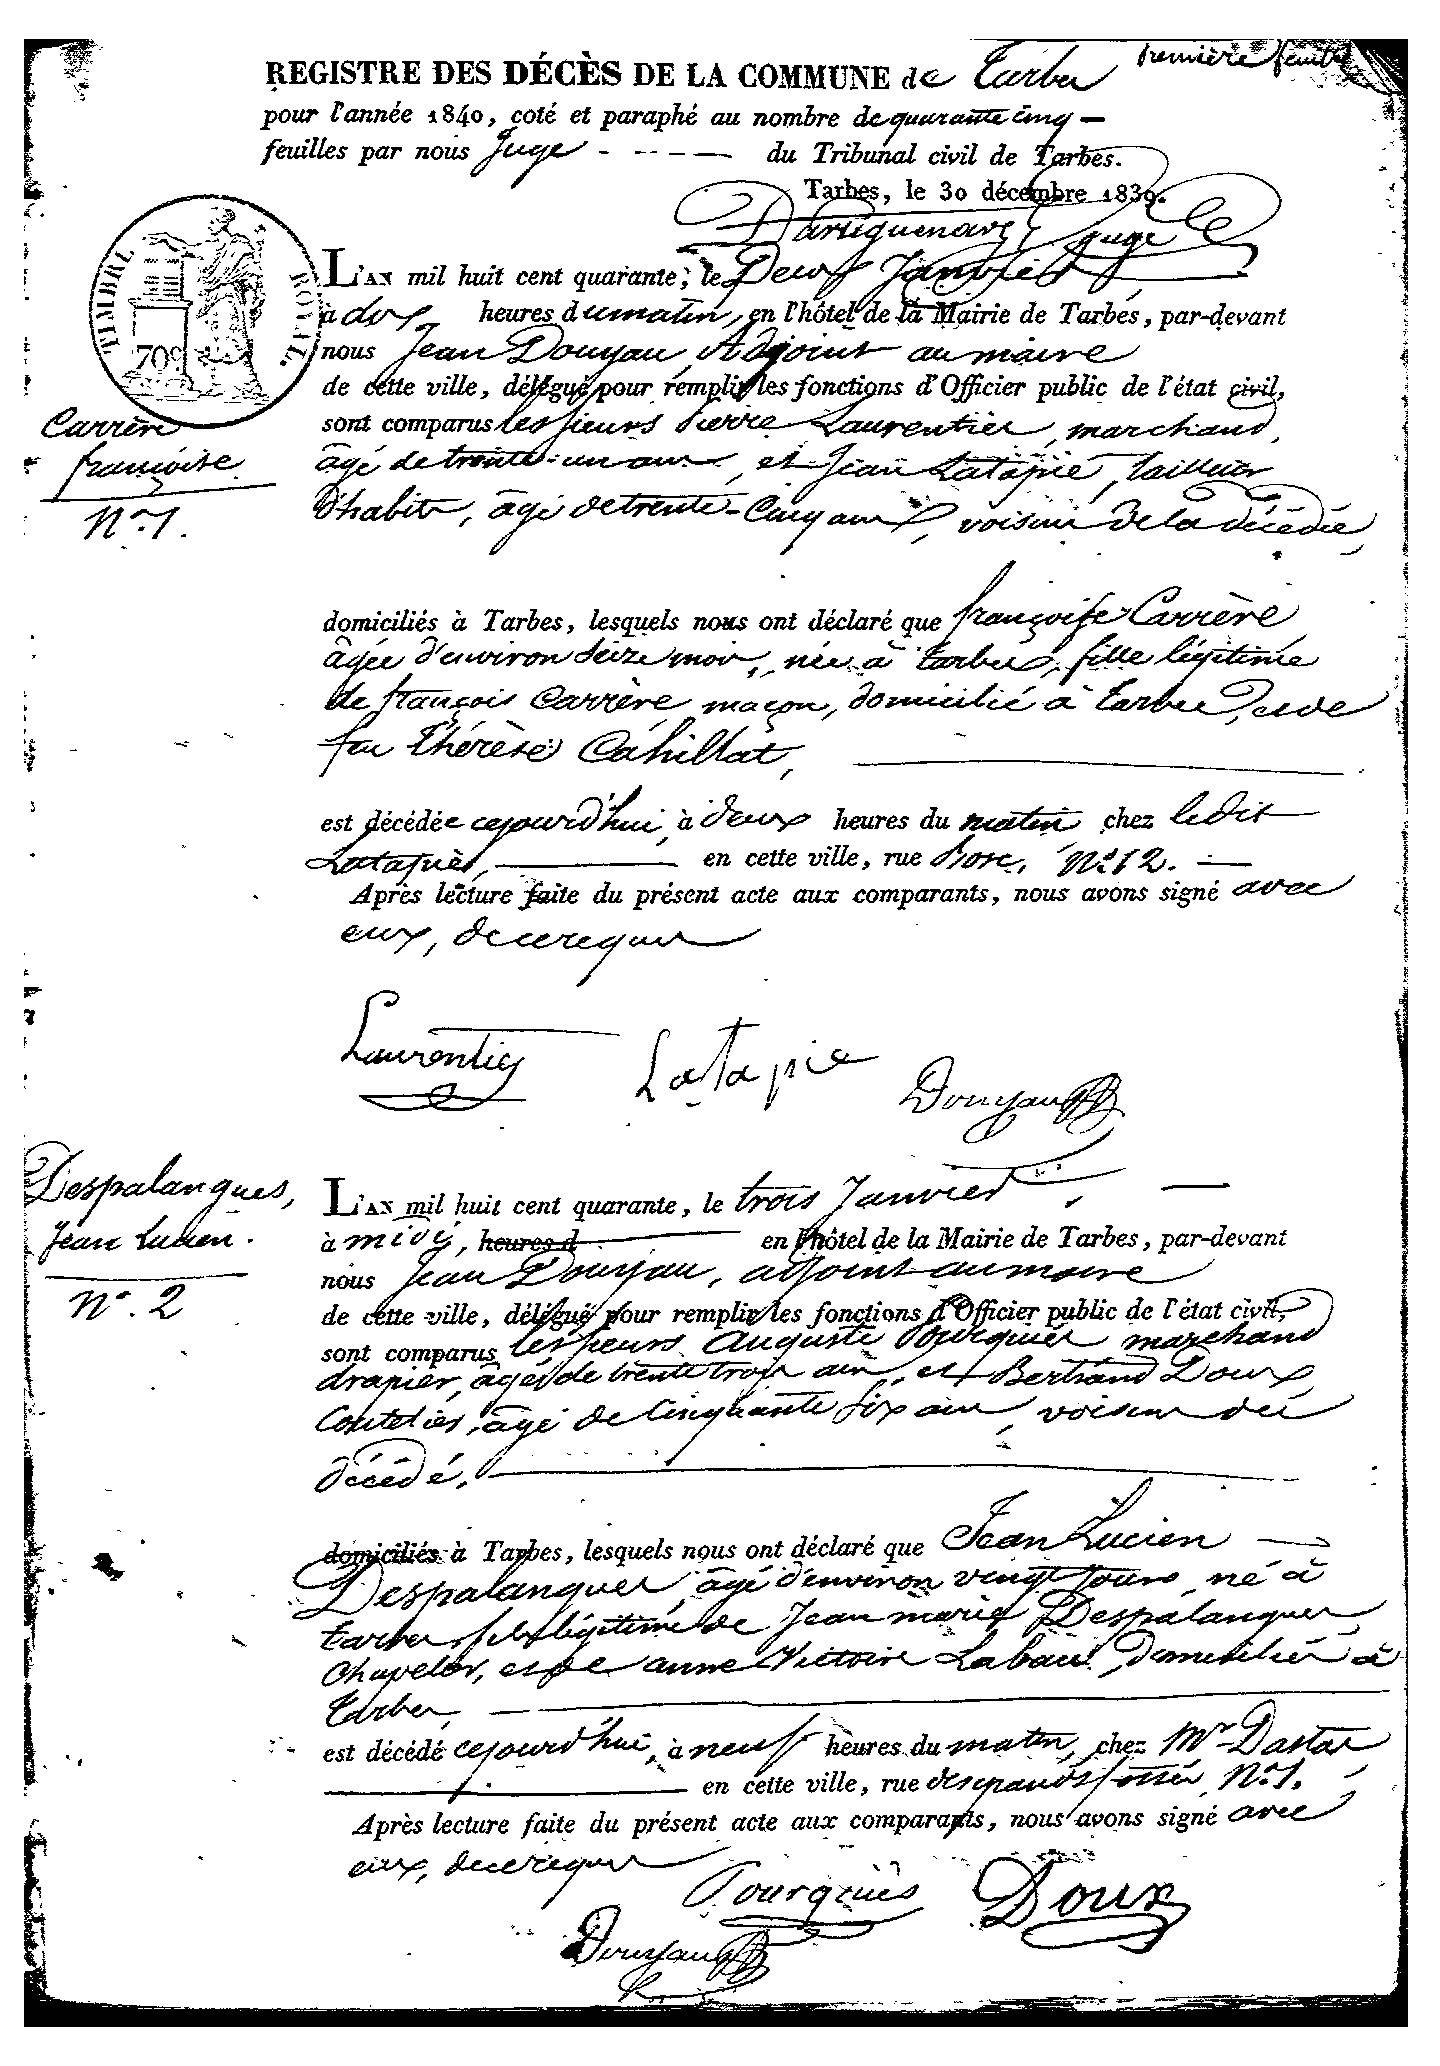 Première feuille
REGISTRE DES DÉCÈS DE LA COMMUNE de Tarbes
pour l'année 1840, coté et paraphé au nombre de quarante cinq —
feuilles par nous Juge - - - - — du Tribunal civil de Tarbes.
Tarbes, le 30 décembre 1839.
juge
TIMBRE ROYAL.
70c
L'AN mil huit cent quarante, le Deux Janvier
à dix heures du matin, en l'hôtel de la Mairie de Tarbes, par-devant
nous Jean Douyau, Adjoint au maire
de cette ville, délégué pour remplir les fonctions d'Officier public de l'état civil,
Carrère
françoise
N.° 1.
sont comparus les sieurs Pierre Laurentier, marchand,
âgé de trente-un ans, et Jean Latapie, tailleur
D'habits, âgé de trente-Cinq ans, voisins de la décédée,
domiciliés à Tarbes, lesquels nous ont déclaré que françoise Carrère
âgée d'environ Seize mois, née à Tarbes, fille légitime
de françois Carrère, maçon, domicilié à Tarbes, et de
feu Thérèse Cahillat,
est décédée cejourd'hui, à deux heures du matin, chez ledit
Latapie, — en cette ville, rue N.° 12. —
Après lecture faite du présent acte aux comparants, nous avons signé avec
eux, de ce requis
Laurentier Latapie Douyau
Despalangues,
Jean Lucien.
N.° 2
L'AN mil huit cent quarante, le trois Janvier, —
à midi, heures d en l'hôtel de la Mairie de Tarbes, par-devant
nous Jean Douyau, adjoint au maire
de cette ville, délégué pour remplir les fonctions d'Officier public de l'état civil,
sont comparus les sieurs Auguste Pourquiès marchand
drapier, âgé de trente trois ans, et Bertrand Doux,
Coutelier, âgé de Cinquante Six ans, voisins du
décédé. —
domiciliés à Tarbes, lesquels nous ont déclaré que Jean Lucien —
Despalangues, âgé d'environ vingt jours, né à
Tarbes, fils légitime de Jean marie Despalangues,
Chapelier, et de anne Victoire Domiciliés à
Tarbes, —
est décédé cejourd'hui, à neuf heures du matin, chez Mr Dastas
— en cette ville, rue des grands fossés, N.° 1.
Après lecture faite du présent acte aux comparants, nous avons signé avec
eux, de ce requis
Pourquiès Doux
Douyau